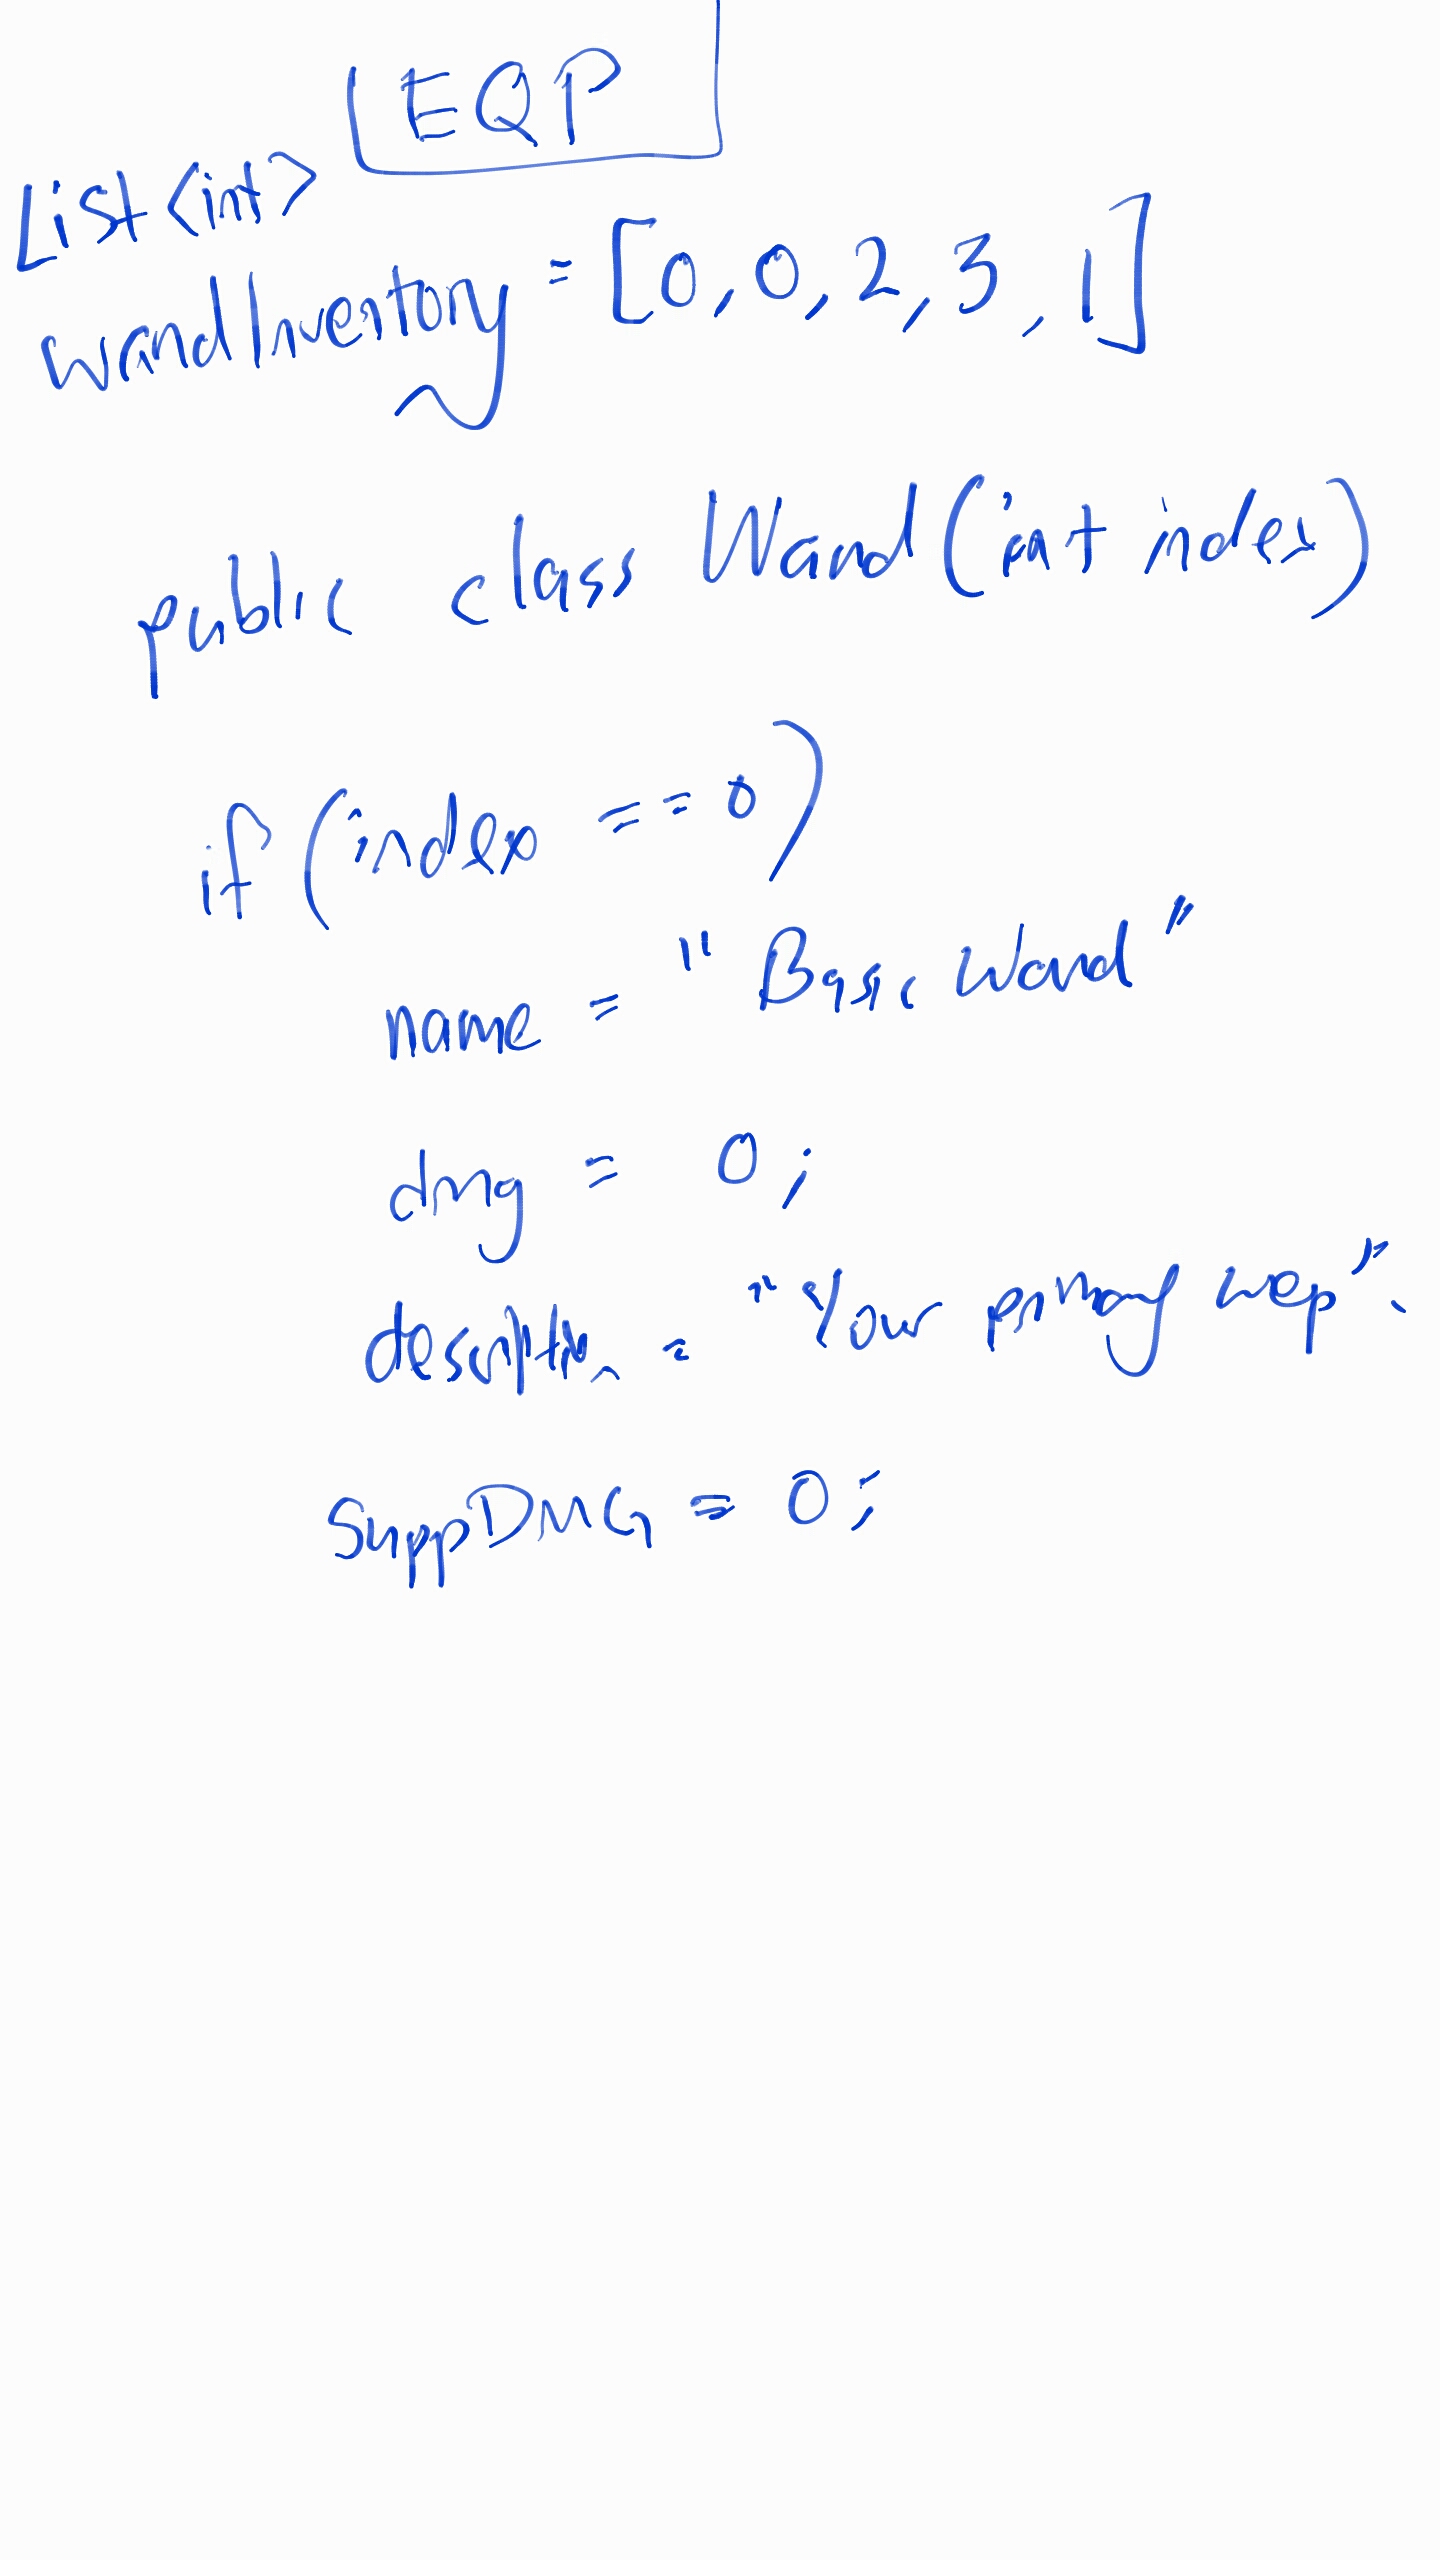 EQP
List<int>
wandInventory = [0, 0, 2, 3, 1]
public class Wand(int index)
if (index == 0)
name = "Basic Wand"
dmg = 0;
description = "Your primary wep".
SuppDMG = 0;